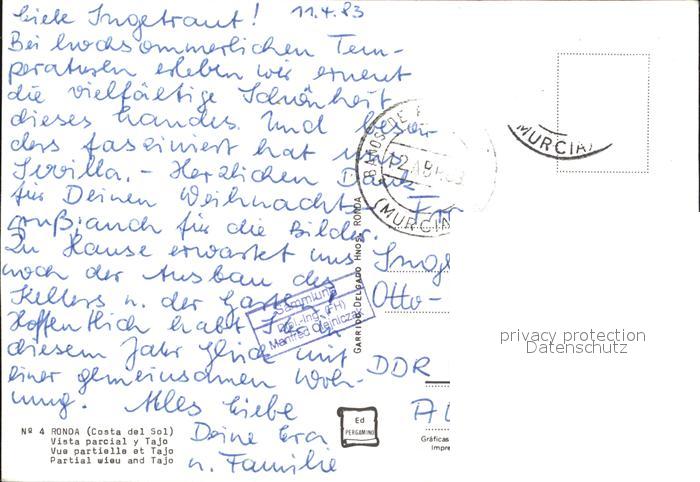 Liebe Ingetraut! 11.4.83
Bei hochsommerlichen Tem-
peraturen erleben wir erneut
die vielfältige Schönheit
dieses Landes. Und beson-
ders fasziniert hat uns
Sevilla. - Herzlichen Dank
für Deinen Weihnachts-
gruß; auch für die Bilder.
Zu Hause erwartet uns
noch der Ausbau des
Kellers u. der Garten.
Hoffentlich habt Ihr in
diesem Jahr Glück mit
einer gemeinsamen Woh-
nung. Alles Liebe
Deine Eva
u. Familie
Nº 4 RONDA (Costa del Sol)
Vista parcial y Tajo
Vue partielle et Tajo
Partial wieu and Tajo
GARRIDO-DELGADO HNOS. RONDA
Sammlung
Dipl.-Ing. (FH)
Manfred Olejniczak
Ed
PERGAMINO
BAÑOS DE
12 ABR 83
(MURCIA)
MURCIA)
Fr
Inge
Otto-
DDR
Gráficas
Impre
privacy protection
Datenschutz